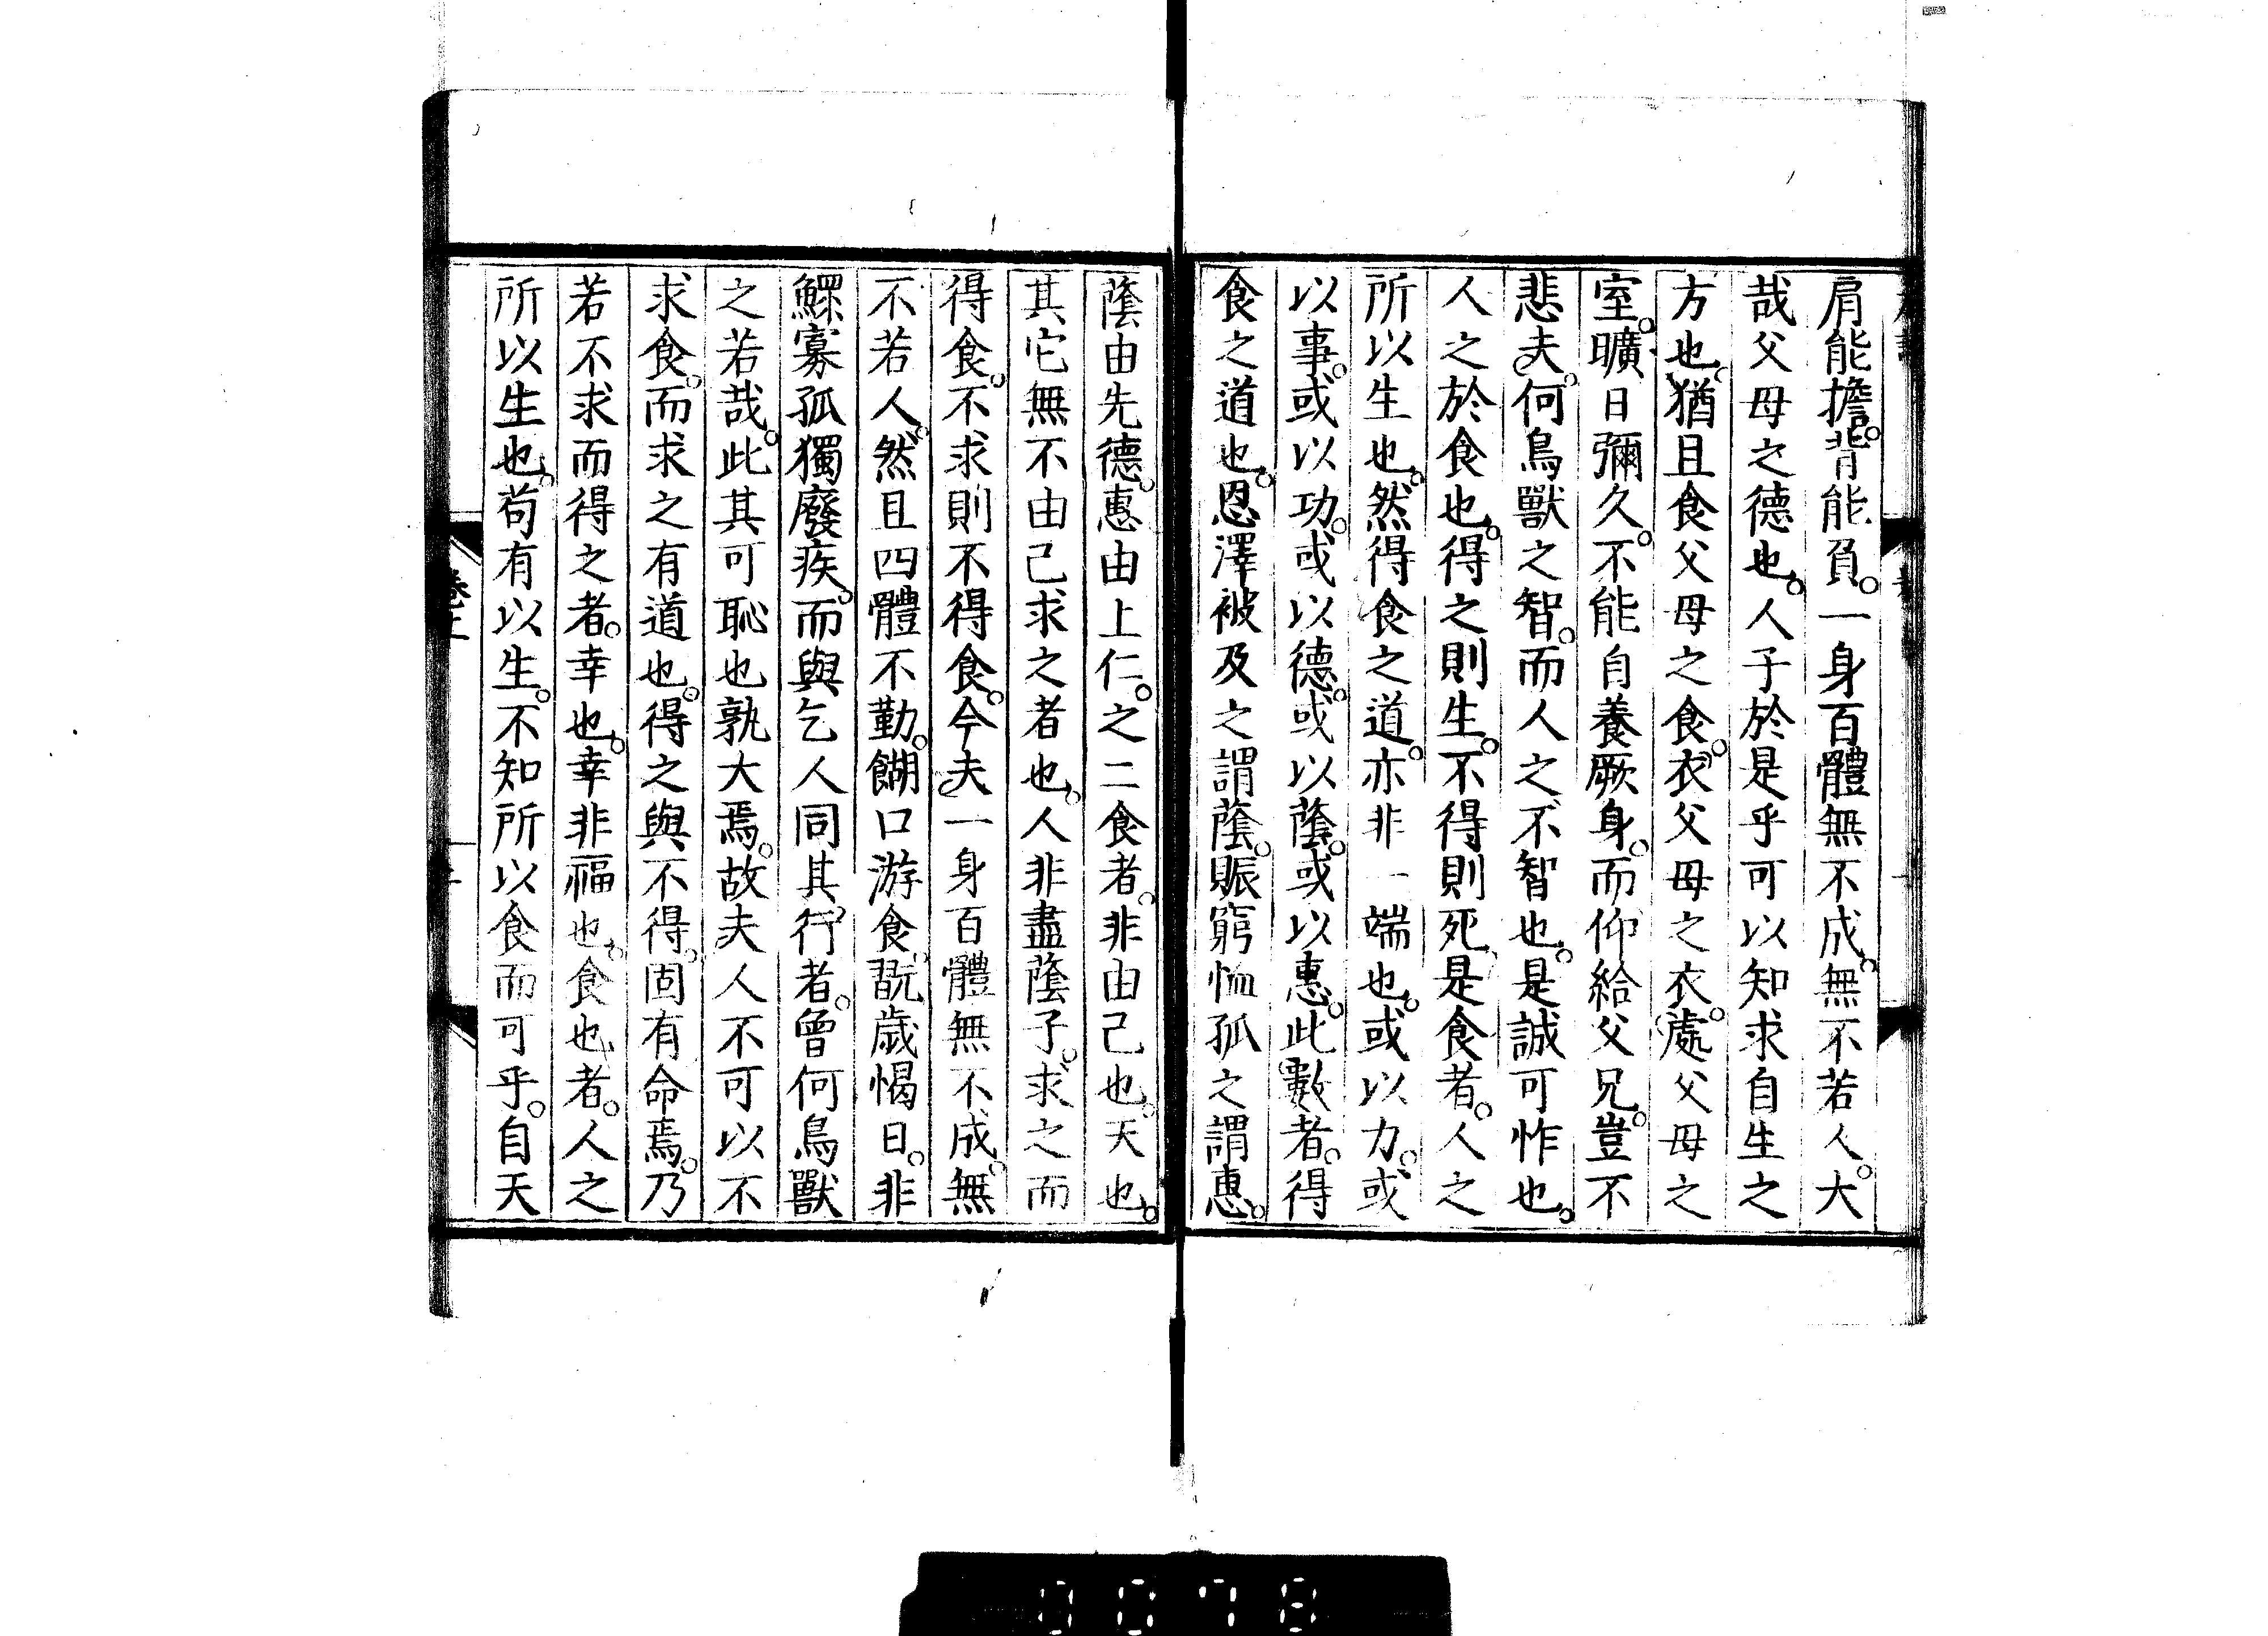 肩能擔。背能負。一身百體無不成。無不若人。大
哉父母之德也。人子於是乎可以知求自生之
方也。猶且食父母之食。衣父母之衣。處父母之
室。曠日彌久。不能自養厥身。而仰給父兄。豈不
悲夫。何鳥獸之智。而人之不智也。是誠可怍也。
人之於食也。得之則生。不得則死。是食者。人之
所以生也。然得食之道。亦非一端也。或以力。或
以事。或以功。或以德。或以蔭。或以惠。此數者。得
食之道也。恩澤被及之謂蔭。賑窮恤孤之謂惠。
蔭由先德。惠由上仁。之二食者。非由己也。天也。
其它無不由己求之者也。人非盡蔭子。求之而
得食。不求則不得食。今夫一身百體無不成。無
不若人。然且四體不勤。餬口游食。翫歳愒日。非
鰥寡孤獨廢疾。而與乞人同其行者。曾何鳥獸
之若哉。此其可恥也孰大焉。故夫人不可以不
求食。而求之有道也。得之與不得。固有命焉。乃
若不求而得之者。幸也。幸非福也。食也者。人之
所以生也。苟有以生。不知所以食而可乎。自天